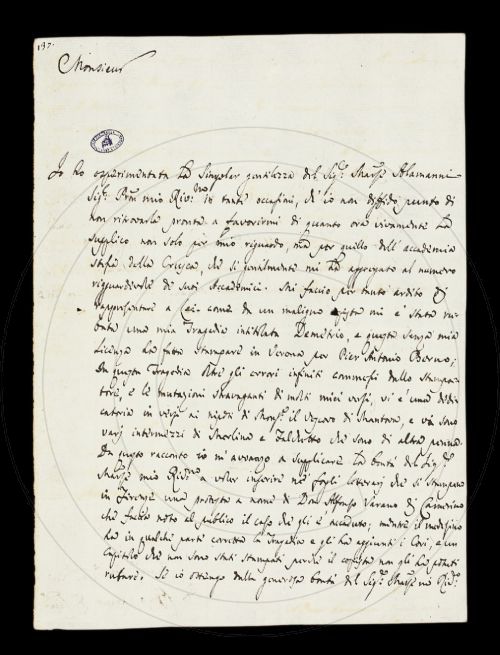 137.
Monsieur
Io ho esperimentata la singolar gentilezza del Sig.r March.e Alamanni
Sig.r Pron mio Riv.mo in tante occasioni, ch' io non diffido punto di
non ritrovarla pronta a favorirmi di quanto ora vivamente la
supplico non solo per mio riguardo, ma per quello dell' accademia
stessa della Crusca, che si gentilmente mi ha aggregato al numero
riguardevole de suoi Accademici. Mi faccio per tanto ardito di
rappresentare a Lei come da un maligno copista mi è stata ru-
bata una mia Tragedia intitolata Demetrio, e questa senza mia
licenza ha fatto stampare in Verona per Pier Antonio Berno;
In questa Tragedia oltre gli errori infiniti commessi dallo Stampa-
tore, e le mutazioni stravaganti di molti miei versi, vi è una dedi-
catoria in versi ai nipoti di Mons.r il Vescovo di Mantova, e vi sono
varj intermezzi di Merlina e Faldetto che sono di altra penna.
Da questo racconto io m' avvanzo a supplicare la bontà del Sig.r
March.e mio Riv.mo a voler inserire nei fogli letterarj che si stampano
in Firenze una protesta a nome di Don Alfonso Varano di Camerino
che faccia noto al publico il caso che gli è accaduto; mentre il medesimo
ha in qualche parti corretta la Tragedia e gli ha aggiunti i Cori, e un
Capitolo che non sono stati stampati perchè il copista non gli ha potuti
rubare. Se io ottengo dalla generosa bontà del Sig.r March.e mio Riv.mo